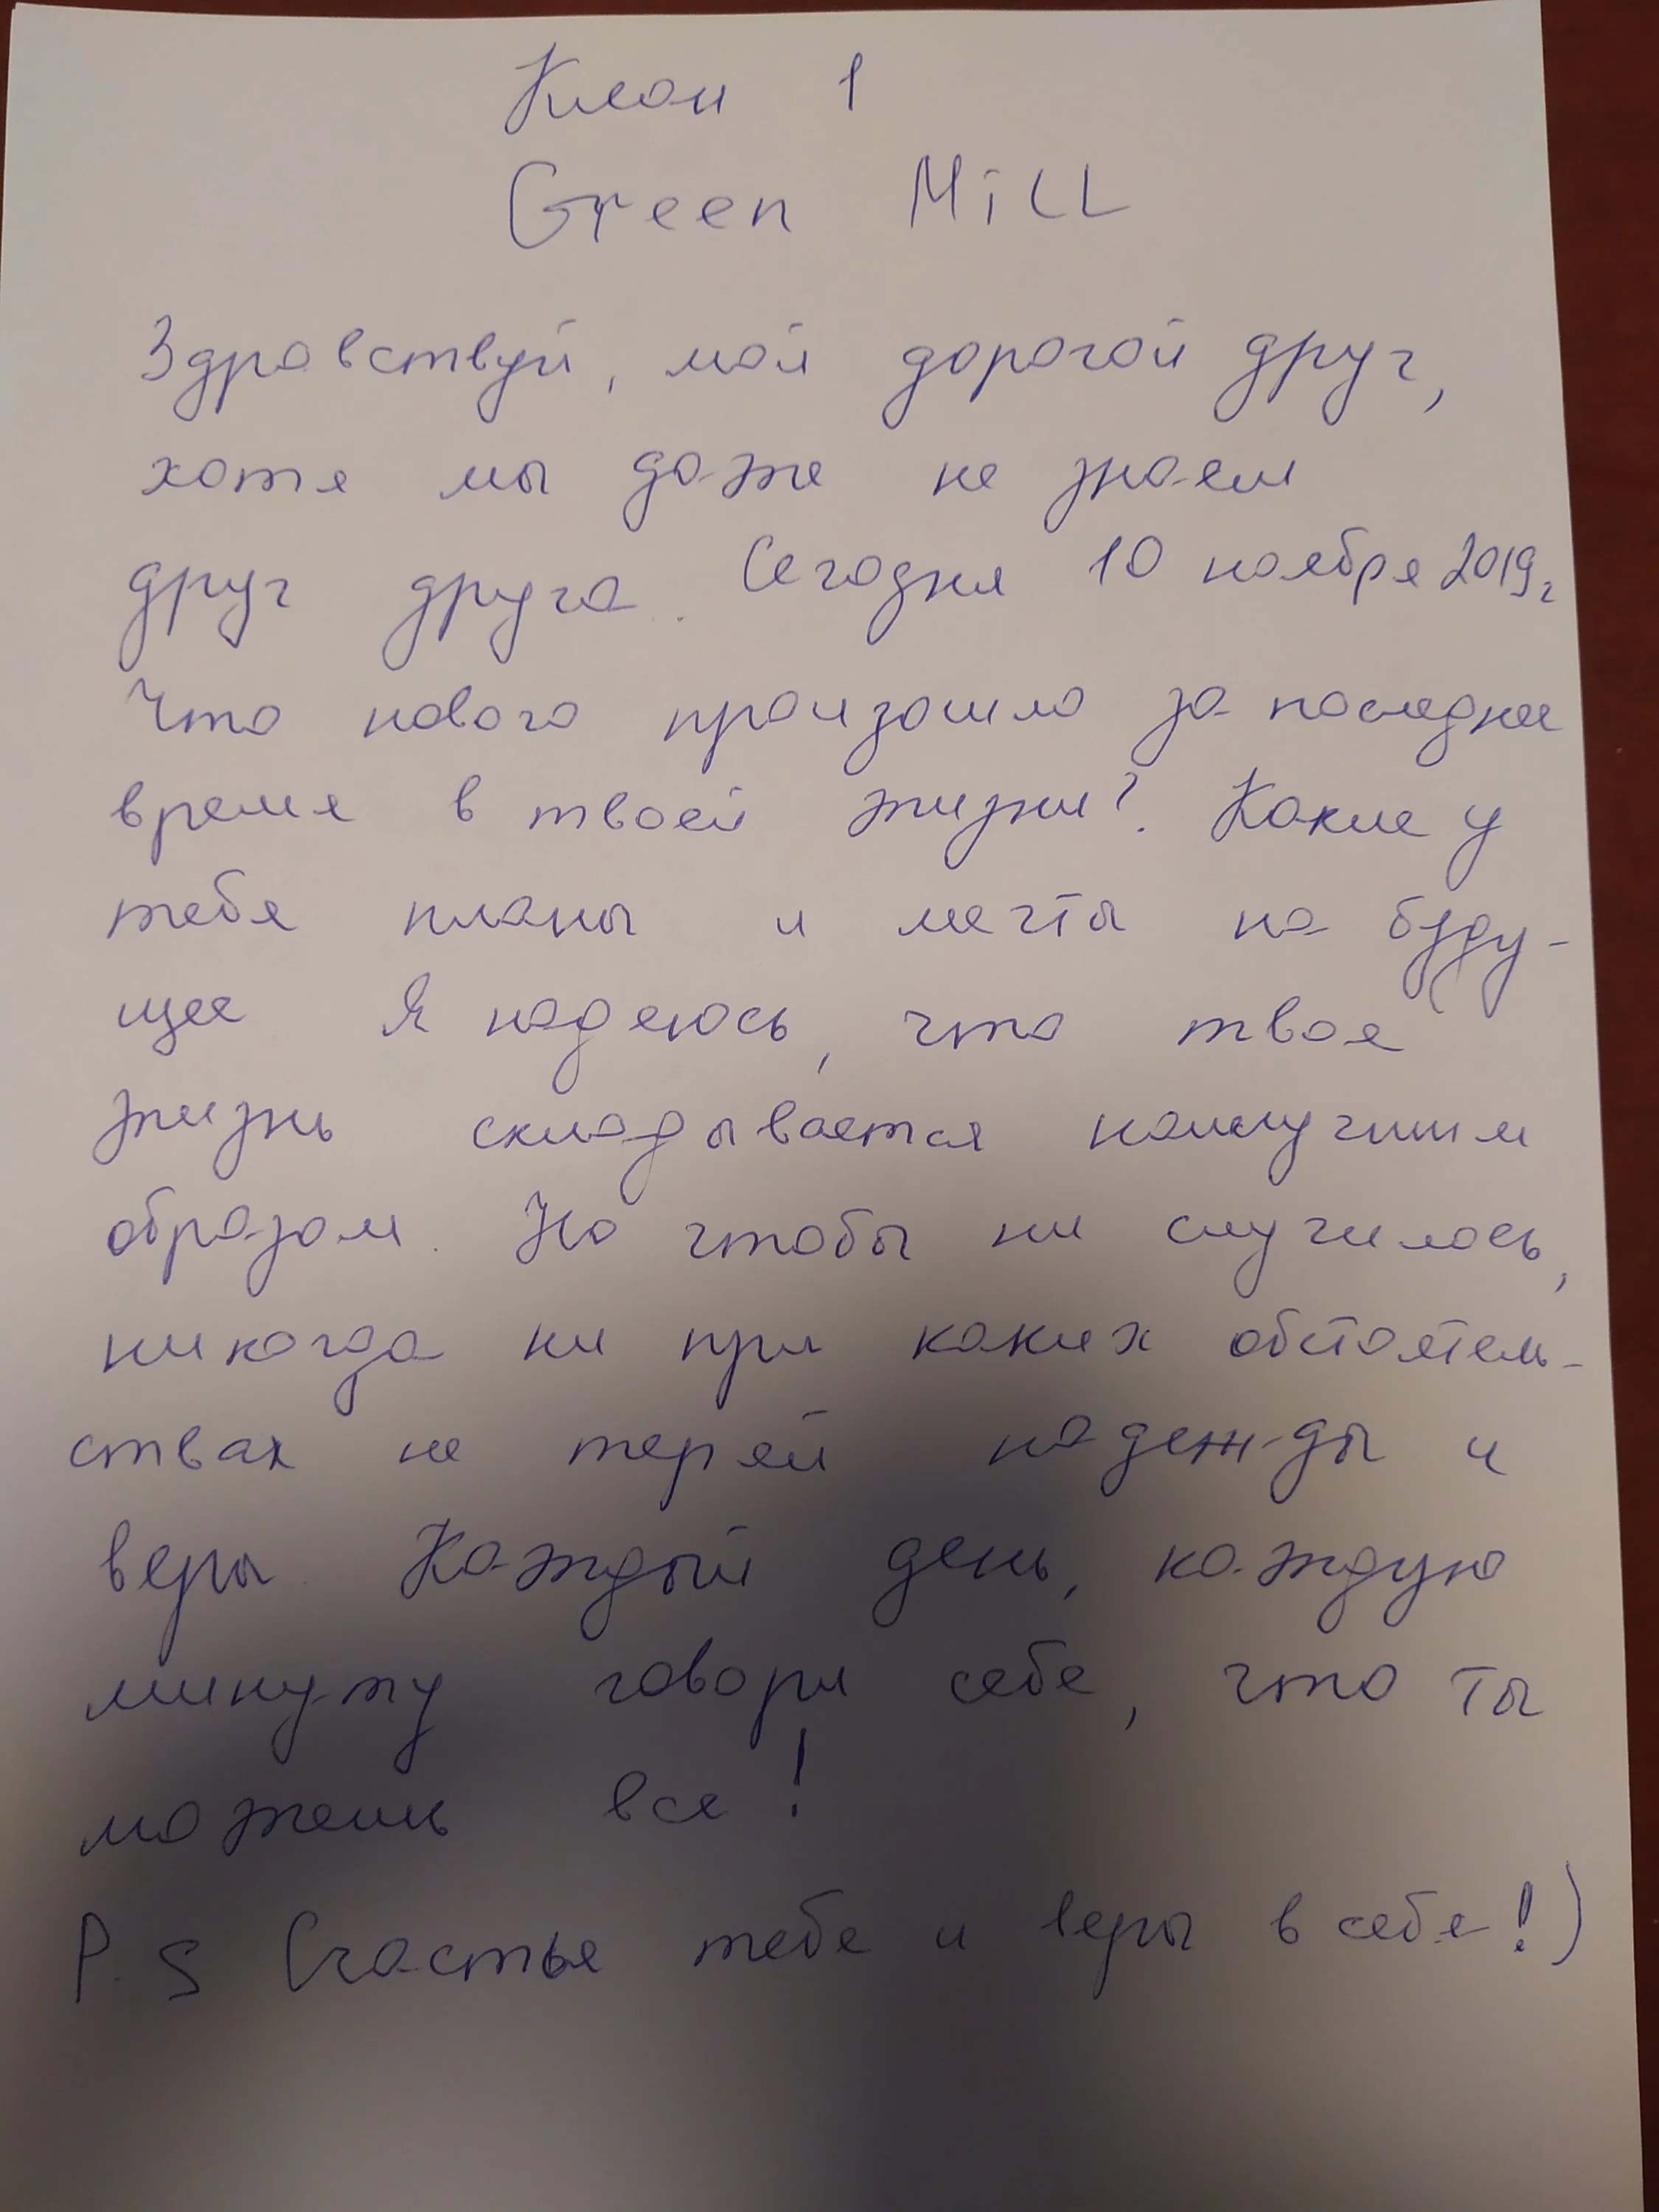 Клан 1
Green MiLL
Здравствуй, мой дорогой друг,
хотя мы даже не знаем
друг друга. Сегодня 10 ноября 2019г
Что нового произошло за последнее
время в твоей жизни? Какие у
тебя планы и мечты на буду-
щее Я надеюсь, что твоя
жизнь складывается наилучшим
образом. Но чтобы ни случилось,
никогда ни при каких обстоятель-
ствах не теряй надежды и
веры. Каждый день, каждую
минуту говори себе, что ты
можешь все!
P.S Счастья тебе и веры в себя!)